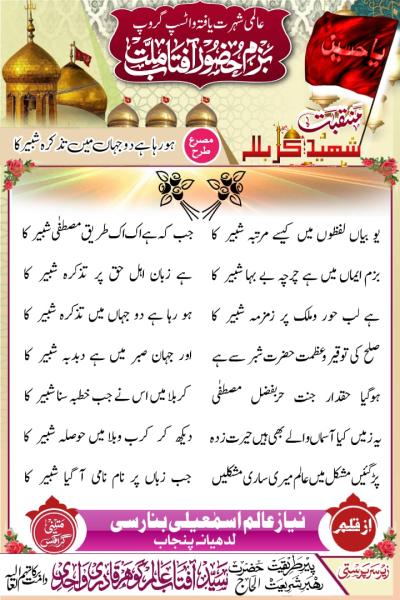 عالمی شہرت یافتہ واٹسپ گروپ
بزم حضور آفتاب ملت
یا حسین
منقبت
شہید کربلا
مصرع طرح
ہو رہا ہے دو جہاں میں تذکرہ شبیر کا
ہو بیاں لفظوں میں کیسے مرتبہ شبیر کا جب کہ ہے اک اک طریق مصطفٰی شبیر کا
بزم ایماں میں ہے چرچہ بے بہا شبیر کا ہے زبان اہل حق پر تذکرہ شبیر کا
ہے لب حور و ملک پر زمزمہ شبیر کا ہو رہا ہے دو جہاں میں تذکرہ شبیر کا
صلح کی توقیر و عظمت حضرت شبر سے ہے اور جہان صبر میں ہے دبدبہ شبیر کا
ہو گیا حقدار جنت حر بفضل مصطفٰی کربلا میں اس نے جب خطبہ سنا شبیر کا
یہ زمیں کیا آسماں والے بھی ہیں حیرت زدہ دیکھ کر کرب و بلا میں حوصلہ شبیر کا
پڑ گئیں مشکل میں عالم میری ساری مشکلیں جب زباں پر نام نامی آ گیا شبیر کا
از قلم
نیاز عالم اسمعیلی بنارسی
لدھیانہ پنجاب
گرافکس
زیر سرپرستی
پیر طریقت رہبر شریعت
حضرت الحاج
سید آفتاب عالم گوہر قادری واحدی